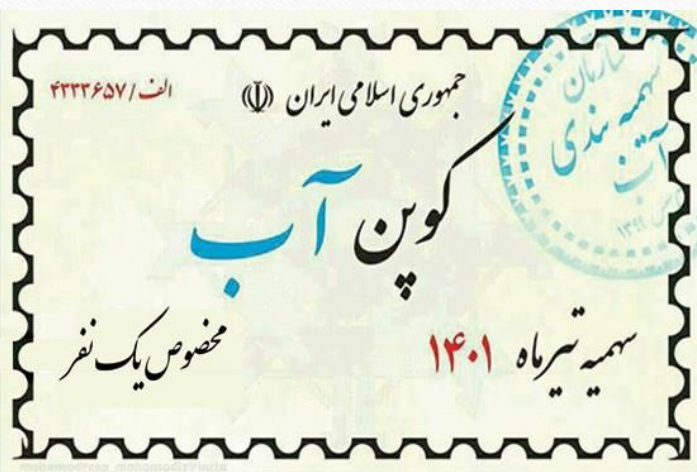 جمهوری اسلامی ایران
الف / ۴۳۳۳۶۵۷
سازمان
سهمیه بندی
آب
کوپن آب
سهمیه تیرماه ۱۴۰۱
مخصوص یک نفر